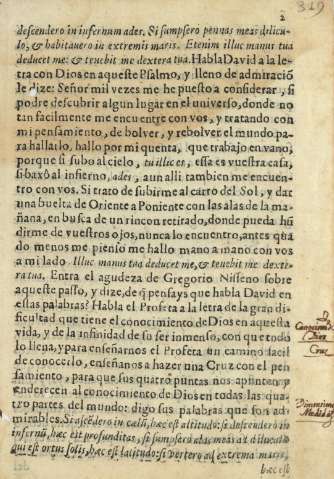 2
319
descendero in infernum ades. Si sumpsero pennas meas dilicu-
lo, & habitauero in extremis maris. Etenim illuc manus tua
deducet me: & tenebit me dextera tua. Habla Dauid a la le
tra con Dios en aqueste Psalmo, y lleno de admiració
le dize: Señor mil vezes me he puesto a considerar, si
podre descubrir algun lugar en el vniuerso, donde no
tan facilmente me encuentre con vos, y tratando con
mi pensamiento, de bolver, y rebolver el mundo pa-
ra hallarlo, hallo por mi quenta, que trabajo en vano,
porque si subo al cielo, tu illic es, essa es vuestra casa,
si baxò al infierno, ades, aun alli tambien me encuen-
tro con vos. Si trato de subirme al carro del Sol, y dar
una buelta de Oriente a Poniente con las alas de la ma-
ñana, en busca de un rincon retirado, donde pueda hũ
dirme de vuestros ojos, nunca lo encuentro, antes quã
do menos me pienso me hallo mano a mano con vos
a mi lado Illuc manus tua deducet me, & tenebit me dexte-
ra tua. Entra el agudeza de Gregorio Nisseno sobre
aqueste passo, y dize, de q̃ pensays que habla David en
essas palabras? Habla el Profeta a la letra de la gran di-
ficultad que tiene el conocimiento de Dios en aquesta
vida, y de la infinidad de su ser inmenso, con que todo
lo llena, y para enseñarnos el Profeta un camino facil
de conocerlo, enseñanos a hazer una Cruz con el pen-
samiento, para que sus quatro puntas nos apunten, y
enderecen al conocimiento de Dios en todas las qua-
tro partes del mundo: digo sus palabras que son ad-
mirables. Si ascẽdero in cœlũ, hæc est altitudo: si descendero in
infernũ, hæc est profunditas, si sumpsero alas meas ad diluculũ
qui est ortus solis, hæc est latitudo: si vertero ad extrema maris,
hæc est
Cruz